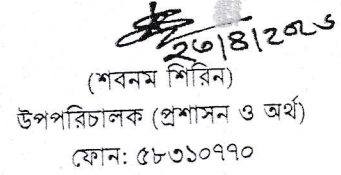 (শবনম শিরিন)
উপপরিচালক (প্রশাসন ও অর্থ)
ফোন: ৫৮৩১০৭৭০